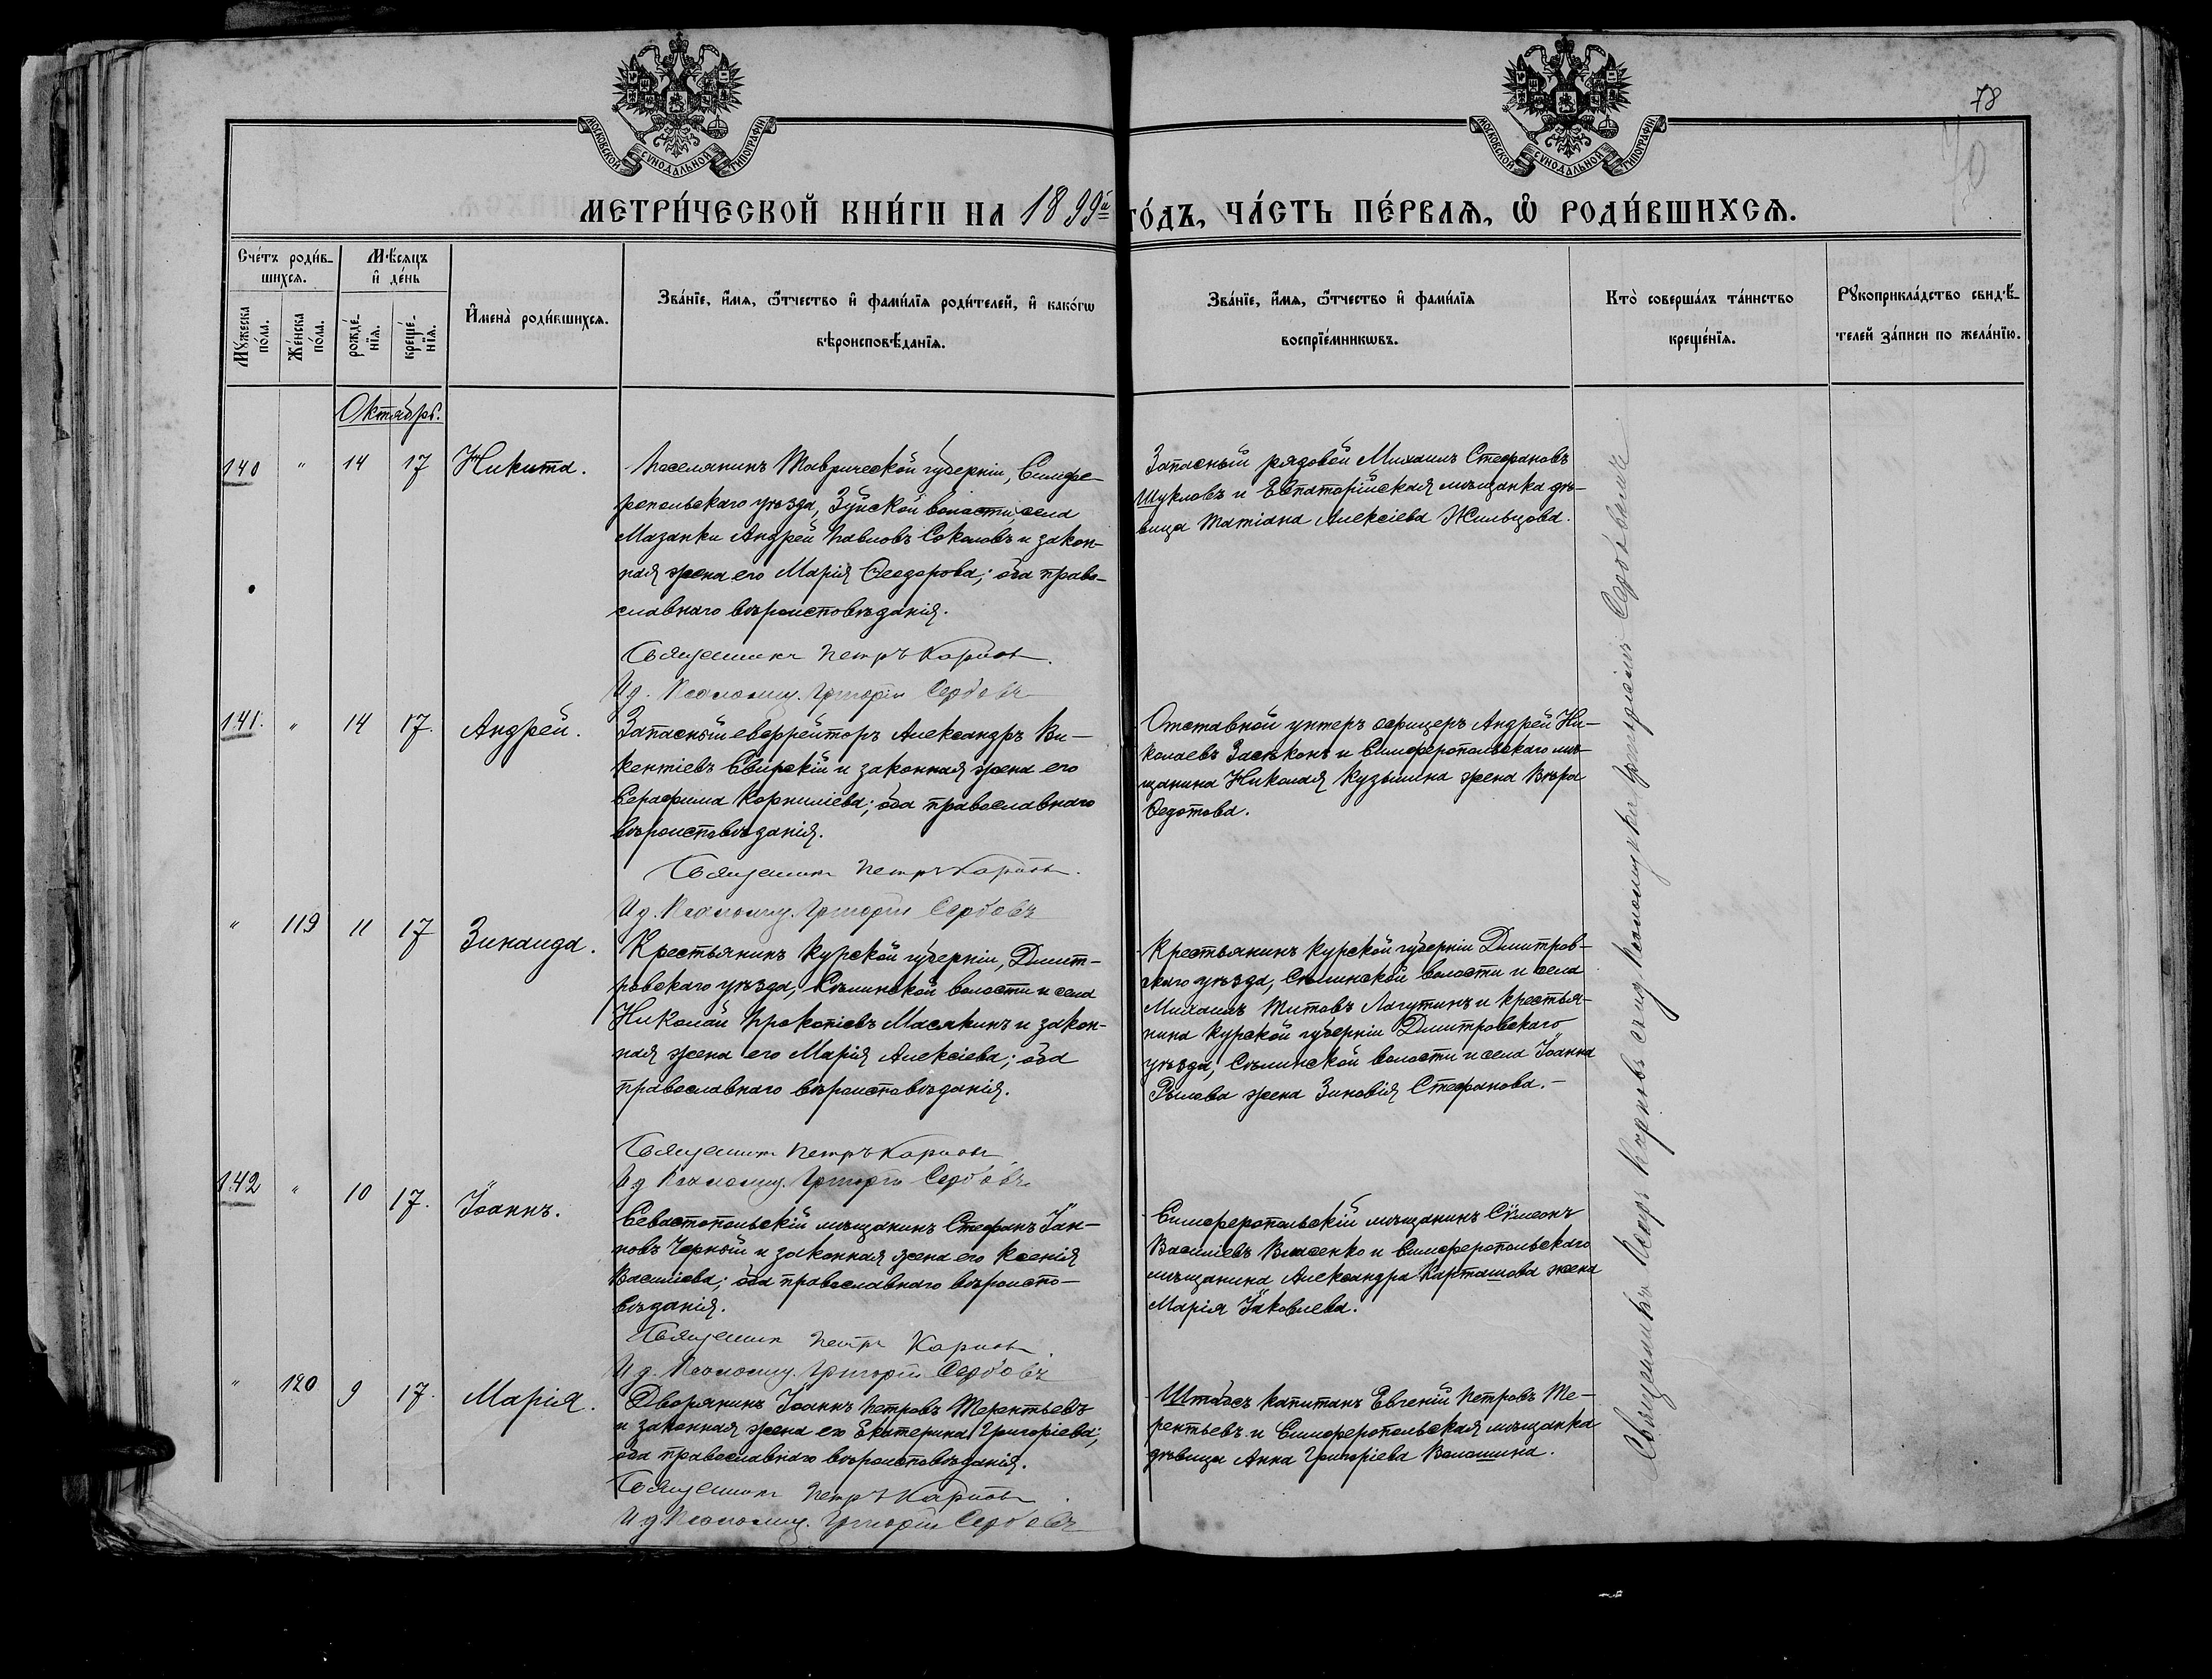 МОСКОВСКОЙ СѴНОДАЛЬНОЙ ТИПОГРАФІИ
МОСКОВСКОЙ СѴНОДАЛЬНОЙ ТИПОГРАФІИ
78
МЕТРИ́ЧЕСКОЙ КНИ́ГИ НА 1899й ГО́ДЪ, ЧА́СТЬ ПЕ́РВАѦ, Ѡ РОДИ́ВШИХСѦ.
Сче́тъ роди́в-
шихсѧ.
Мꙋ́жеска по́ла.
Же́нска по́ла.
Мѣ́сяцъ
и҆ де́нь
рожде́-
нїѧ.
креще́-
нїѧ.
И҆мена̀ роди́вшихсѧ.
Зва́нїе, и҆́мѧ, ѻ҆́тчество и҆ фами́лїѧ роди́телей, и҆ како́гѡ
вѣроисповѣ́данїѧ.
Зва́нїе, и҆́мѧ, ѻ҆́тчество и҆ фами́лїѧ
воспрїе́мникѡвъ.
Кто̀ соверша́лъ та́инство
креще́нїѧ.
Рꙋкоприкла́дство свидѣ́-
телей за́писи по жела́нїю.
Октябрь.
140 " 14 17 Никита.
Поселянинъ Таврической губерніи, Симфе-
ропольскаго уѣзда, Зуйской волости, села
Мазанки Андрей Павловъ Соколовъ и закон-
ная жена его Марія Ѳеодорова; оба право-
славнаго вѣроисповѣданія.
Священникъ Петръ Карповъ.
И.д. Псаломщ. Григорій Сербовъ
Запасный рядовой Михаилъ Стефановъ
Шукловъ и Евпаторійская мѣщанка дѣ-
вица Татіана Алексіева Жильцова.
141. " 14 17. Андрей.
Запасный ефрейторъ Александръ Ви-
кентіевъ Свирскій и законная жена его
Серафима Корниліева; оба православнаго
вѣроисповѣданія.
Священникъ Петръ Карповъ.
И.д. Псаломщ. Григорій Сербовъ
Отставной унтеръ офицеръ Андрей Ни-
колаевъ и Симферопольскаго мѣ-
щанина Николая Кузьмина жена Вѣра
Ѳедотова.
" 119 11 17 Зинаида.
Крестьянинъ Курской губерніи, Дмит-
ровскаго уѣзда, волости и села
Николай Прокопіевъ Масякинъ и закон-
ная жена его Марія Алексіева; оба
православнаго вѣроисповѣданія.
Священникъ Петръ Карповъ
И.д. Псаломщ. Григорій Сербовъ
Крестьянинъ Курской губерніи Дмитров-
скаго уѣзда, волости и села
Михаилъ Титовъ Лагутинъ и крестья-
нина Курской губерніи Дмитровскаго
уѣзда, волости и села Іоанна
Рылова жена Зиновія Стефанова.-
142 " 10 17. Іоаннъ.
Севастопольскій мѣщанинъ Стефанъ Іан-
новъ Черный и законная жена его Ксенія
Василіева; оба православнаго вѣроиспо-
вѣданія.
Священникъ Петръ Карповъ.
И.д. Псаломщ. Григорій Сербовъ
Симферопольскій мѣщанинъ Сѵмеонъ
Василіевъ Власенко и Симферопольскаго
мѣщанина Александра Карташова жена
Марія Іаковлева.
" 120 9 17. Марія.
Дворянинъ Іоаннъ Петровъ Терентьевъ
и законная жена его Екатерина Григоріева;
оба православнаго вѣроисповѣданія.
Священникъ Петръ Карповъ.
И.д. Псаломщ. Григорій Сербовъ
Штабсъ капитанъ Евгеній Петровъ Те-
рентьевъ и Симферопольская мѣщанка
дѣвица Анна Григоріева Волошина.
Священникъ Петръ Карповъ съ и.д. псаломщика Григоріемъ Сербовымъ.